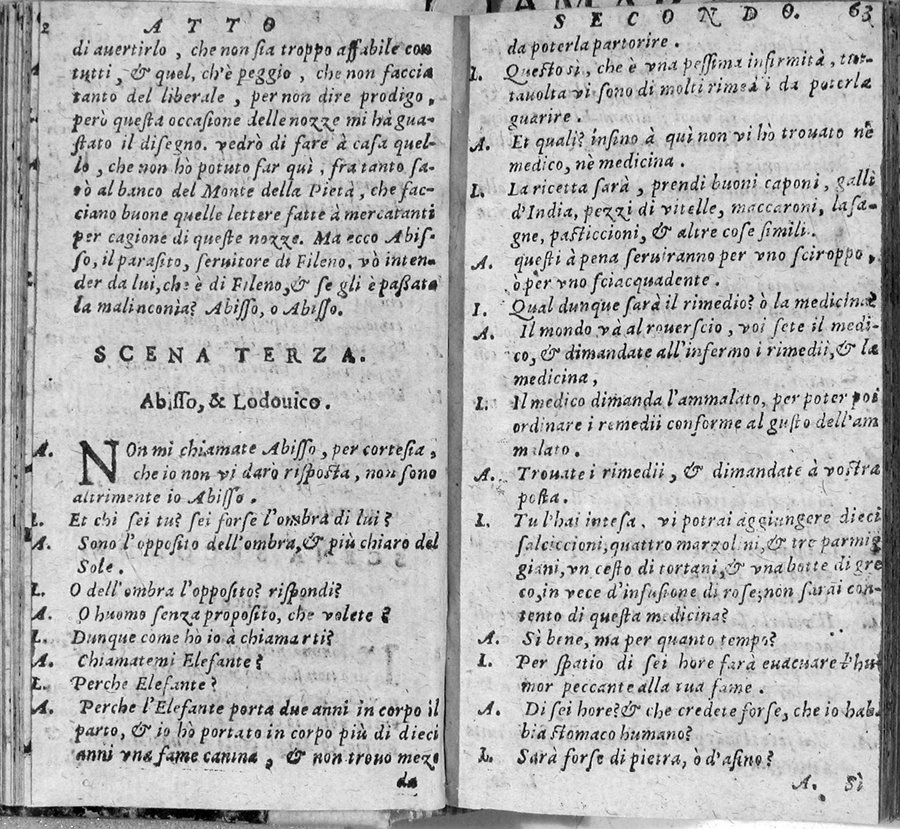 2 ATTO
di auertirlo, che non sia troppo affabile con
tutti, & quel, ch'è peggio, che non faccia
tanto del liberale, per non dire prodigo,
però questa occasione delle nozze mi hà gua-
stato il disegno. vedrò di fare à casa quel-
lo, che non hò potuto far quì, fra tanto sa-
rò al banco del Monte della Pietà, che fac-
ciano buone quelle lettere fatte à mercatanti
per cagione di queste nozze. Ma ecco Abis-
so, il parasito, seruitore di Fileno. vò inten-
der da lui, che è di Fileno, & se gli è passata
la malinconia? Abisso, o Abisso.
SCENA TERZA.
Abisso, & Lodouico.
A. NOn mi chiamate Abisso, per cortesia,
che io non vi darò risposta, non sono
altrimente io Abisso.
L. Et chi sei tu? sei forse l'ombra di lui?
A. Sono l'opposito dell'ombra, & più chiaro del
Sole.
L. O dell'ombra l'opposito? rispondi?
A. O huomo senza proposito, che volete?
L. Dunque come hò io à chiamarti?
A. Chiamatemi Elefante?
L. Perche Elefante?
A. Perche l'Elefante porta due anni in corpo il
parto, & io hò portato in corpo più di dieci
anni vna fame canina, & non trouo mezo
da
SECONDO. 63
da poterla partorire.
L. Questo sì, che è vna pessima infirmità, tut-
tauolta vi sono di molti rimedi i da poterla
guarire.
A. Et quali? insino à quì non vi hò trouato nè
medico, nè medicina.
L. La ricetta sarà, prendi buoni caponi, galli
d'India, pezzi di vitelle, maccaroni, lasa-
gne, pasticcioni, & altre cose simili.
A. questi à pena seruiranno per vno sciroppo,
ò per vno sciacquadente.
L. Qual dunque sarà il rimedio? ò la medicina?
A. Il mondo và al rouerscio, voi sete il medi-
co, & dimandate all'infermo i rimedii, & la
medicina,
L. Il medico dimanda l'ammalato, per poter poi
ordinare i remedii conforme al gusto dell'am
malato.
A. Trouate i rimedii, & dimandate à vostra
posta.
L. Tu l'hai intesa, vi potrai aggiungere dieci
salciccioni, quattro marzolini, & tre parmig
giani, vn cesto di tortani, & vna botte di gre
co, in vece d'infusione di rose; non sarai con-
tento di questa medicina?
A. Sì bene, ma per quanto tempo?
L. Per spatio di sei hore farà euacuare l'hu
mor peccante alla tua fame.
A. Di sei hore? & che credete forse, che io hab-
bia stomaco humano?
L. Sarà forse di pietra, ò d'asino?
A. Sì